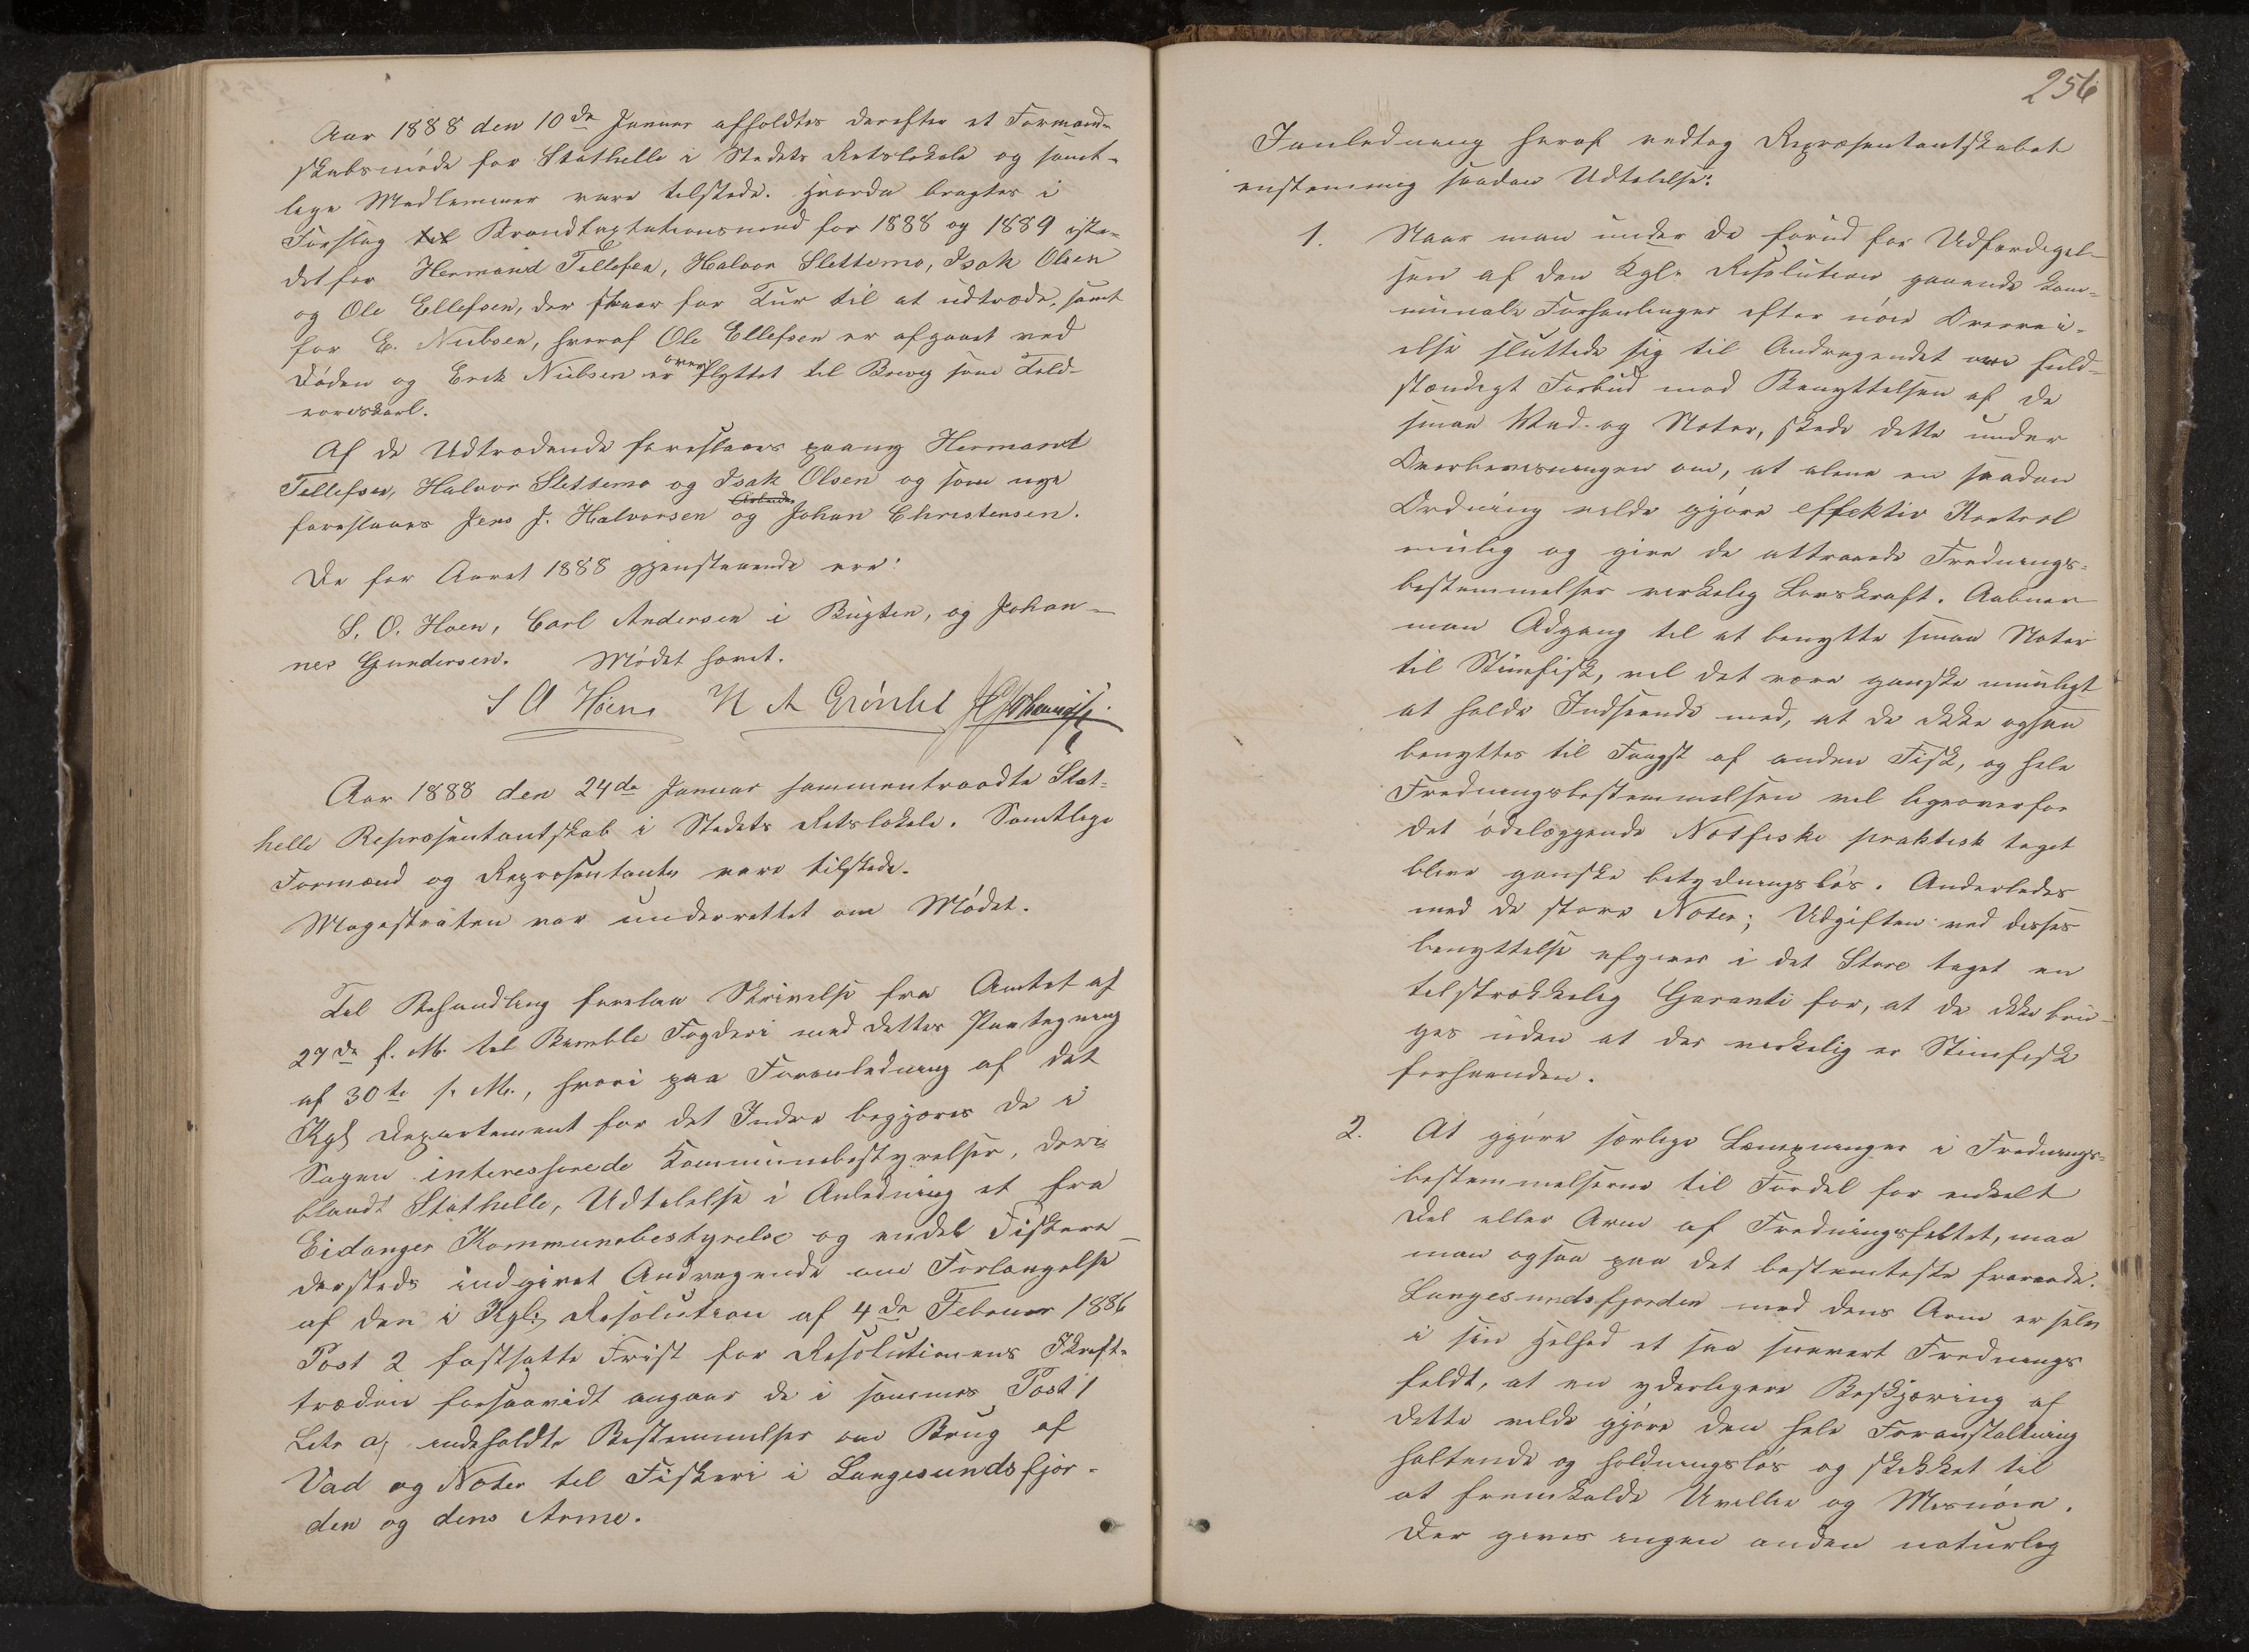 Aar 1888 den 10de Januar afholdtes derefter et Formand-
skabsmøde for Stathelle i Stedets Retslokale og samt-
lige Medlemmer vare tilstede. Hvorda bragtes i
Forslag til Brandtaxtationsmend for 1888 og 1889 iste-
detfor Hermand Tellefsen, Halvor Slettemo, Isak Olsen
og Ole Ellefsen, der staar for Tur til at udtræde, samt
for E. Nielsen, hvoraf Ole Ellefsen er afgaaet ved
Døden og Erik Nielsen er over flyttet til Brevig som Told-
roerskarl.
Af de Udtrædende foreslaaes paany Hermand
Tellefsen, Halvor Slettemo og Isak Olsen og som nye
foreslaaes Jens J. Halvorsen og Arbeider Johan Christensen.
De for Aaret 1888 gjenstaaende ere:
S. O. Hoen, Carl Andersen i Bugten, og Johan-
nes Gundersen. Mødet hævet.
S O Høen N A Grönli
Aar 1888 den 24de Januar sammentraadte Stat-
helle Repræsentantskab i Stedets Retslokale. Samtlige
Formænd og Repræsentanter vare tilstede.
Magistraten var underrettet om Mødet.
Til Behandling forelaa Skrivelse fra Amtet af
27de f. M. til Bamble Fogderi med dettes Paategning
af 30te s. M., hvori paa Foranledning af det
Kgl Departement for det Indre begjæres de i
Sagen interesserede Kommunebestyrelser, deri-
blandt Stathelle, Udtalelse i Anledning et fra
Eidanger Kommunebestyrelse og endel Fiskere
dersteds indgivet Andragende om Forlængelse
af den i Kgl. Resolution af 4de Februar 1886
Post 2 fastsatte Frist for Resolutionens Ikraft-
træden forsaavidt angaar de i sammes Post 1
Litr a, indeholdte Bestemmelser om Brug af
Vad og Noter til Fiskeri i Langesundsfjor-
den og dens Arme.
256
Ianledning heraf vedtog Repræsentantskabet
enstemmig saadan Udtalelse:
1. Naar man under de forud for Udfærdigel-
sen af den Kgl. Resolution gaaende kom-
munale Forhanlinger efter nøie Overvei-
else sluttede sig til Andragendet om fuld-
stændigt Forbud mod Benyttelsen af de
smaa Vad- og Noter, skede dette under
Overbevisningen om, at alene en saadan
Ordning vilde gjøre effektiv Kontrol
mulig og give de attraaede Frednings-
bestemmelser virkelig Lovskraft. Aabner
man Adgang til at benytte smaa Noter
til Stimfisk, vil det være ganske umuligt
at holde Indseende med, at de ikke ogsaa
benyttes til Fangst af anden Fisk, og hele
Fredningsbestemmelsen vil ligeoverfor
det ødelæggende Notfiske praktisk taget
blive ganske betydningsløs. Anderledes
med de store Noter; Udgiften ved disses
benyttelse afgiver i det Store taget en
tilstrækkelig Garanti for, at de ikke bru-
ges uden at der virkelig er Stimfisk
forhaanden.
2. At gjøre særlige Læmpninger i Frednings-
bestemmelserne til Fordel for enkelt
Del eller Arm af Fredningsfeltet, maa
man ogsaa paa det bestemteste fraraade.
Langesundsfjorden med dens Arme er selv
i sin Helhed et saa snevert Frednings
feldt, at en yderligere Beskjæring af
dette vilde gjøre den hele Foranstaltning
haltende og holdningsløs og skikket til
at fremkalde Uvillie og Misnøie.
Der gives ingen anden naturlig